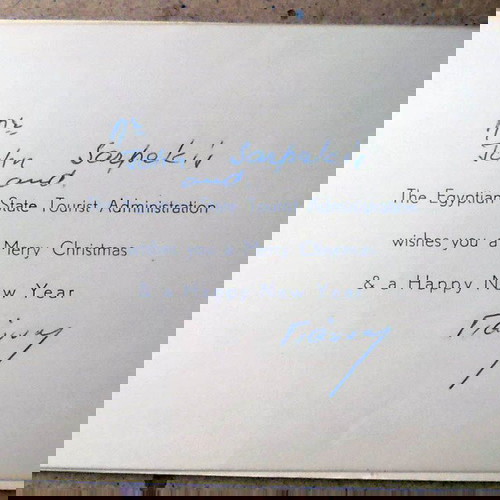 Mr
John
and
The Egyptian State Tourist Administration
wishes you a Merry Christmas
& a Happy New Year